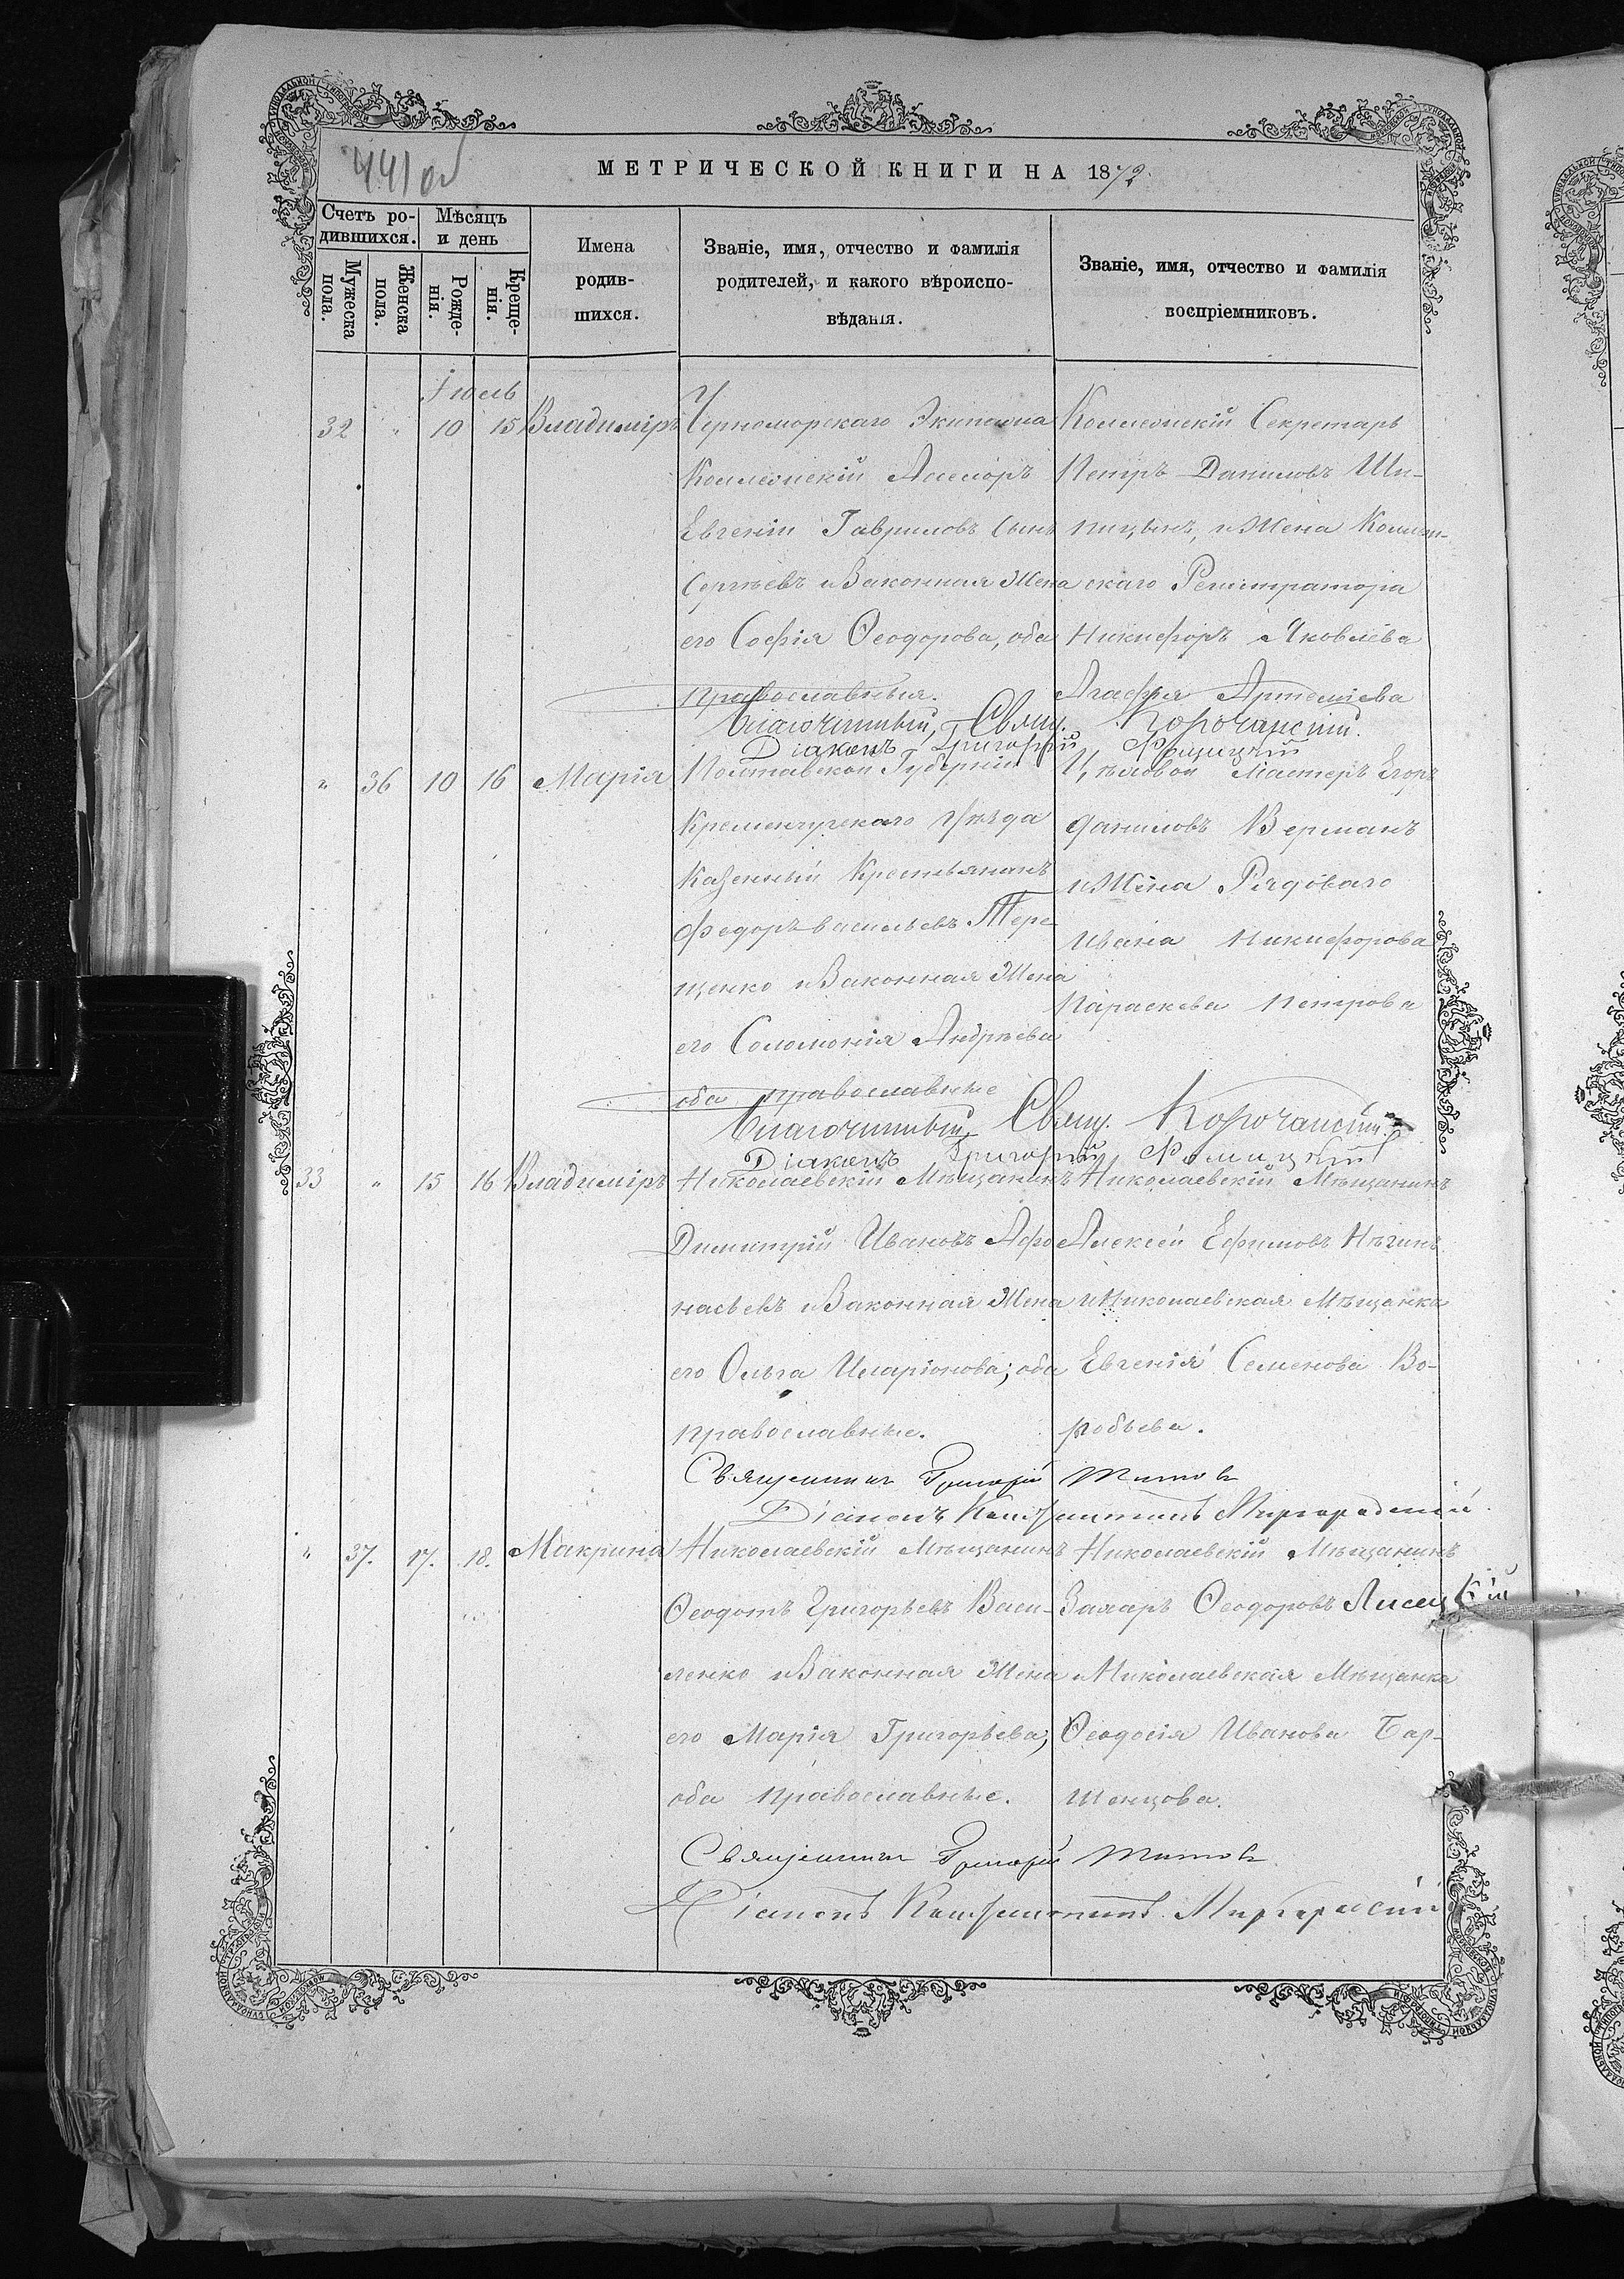 441об
МЕТРИЧЕСКОЙ КНИГИ НА 1872.
Счетъ ро-
дившихся.
Мужеска
пола.
Женска
пола.
Мѣсяцъ
и день
Рожде-
нія.
Креще-
нія.
Имена
родив-
шихся.
Званіе, имя, отчество и фамилія
родителей, и какого вѣроиспо-
вѣданія.
Званіе, имя, отчество и фамилія
воспріемниковъ.
Іюль
32 " 10 15 Владиміръ
Черноморскаго Экипажа
Коллежскій Асесоръ
Евгеній Гавриловъ Сынъ
Сергѣевъ и Законная Жена
его Софія Ѳеодорова, оба
православныя.
Коллежскій Секретарь
Петръ Даниловъ Ши-
пицынъ, и Жена Коллеж-
скаго Регистратора
Никифоръ Яковлева
Агафія Артеміева
Благочинный, Свящ. Корочанскій.
Діаконъ Григорій
" 36 10 16 Марія
Полтавской Губерніи
Кременчугскаго Уѣзда
Казенный Крестьянинъ
Федоръ Васильевъ Тере
щенко и Законная Жена
его Соломонія Андрѣева
оба православные
Цѣховой Мастеръ Егоръ
Даниловъ Верманъ
и Жена Рядоваго
Ивана Никифорова
Параскева Петрова
Благочинный Свящ. Корочанскій
Діаконъ Григорій
33 " 15 16 Владиміръ
Николаевскій Мѣщанинъ
Димитрій Ивановъ Афо
насьевъ и Законная Жена
его Ольга Иларіонова; оба
православные.
Николаевскій Мѣщанинъ
Алексѣй Ефимовъ Нѣгинъ
и Николаевская Мѣщанка
Евгенія Семенова Во-
робьева.
Священникъ Григорій Титовъ
Діаконъ Константинъ Миргородскій.
" 37. 17. 18. Макрина
Николаевскій Мѣщанинъ
Ѳеодотъ Григорьевъ Васи-
ленко и Законная Жена
его Марія Григорьева;
оба православные.
Николаевскій Мѣщанинъ
Захаръ Ѳеодоровъ Лисецкій
и Николаевская Мѣщанка
Ѳеодосія Иванова Бар-
шенцова.
Священникъ Григорій Титовъ
Діаконъ Константинъ Миргородскій